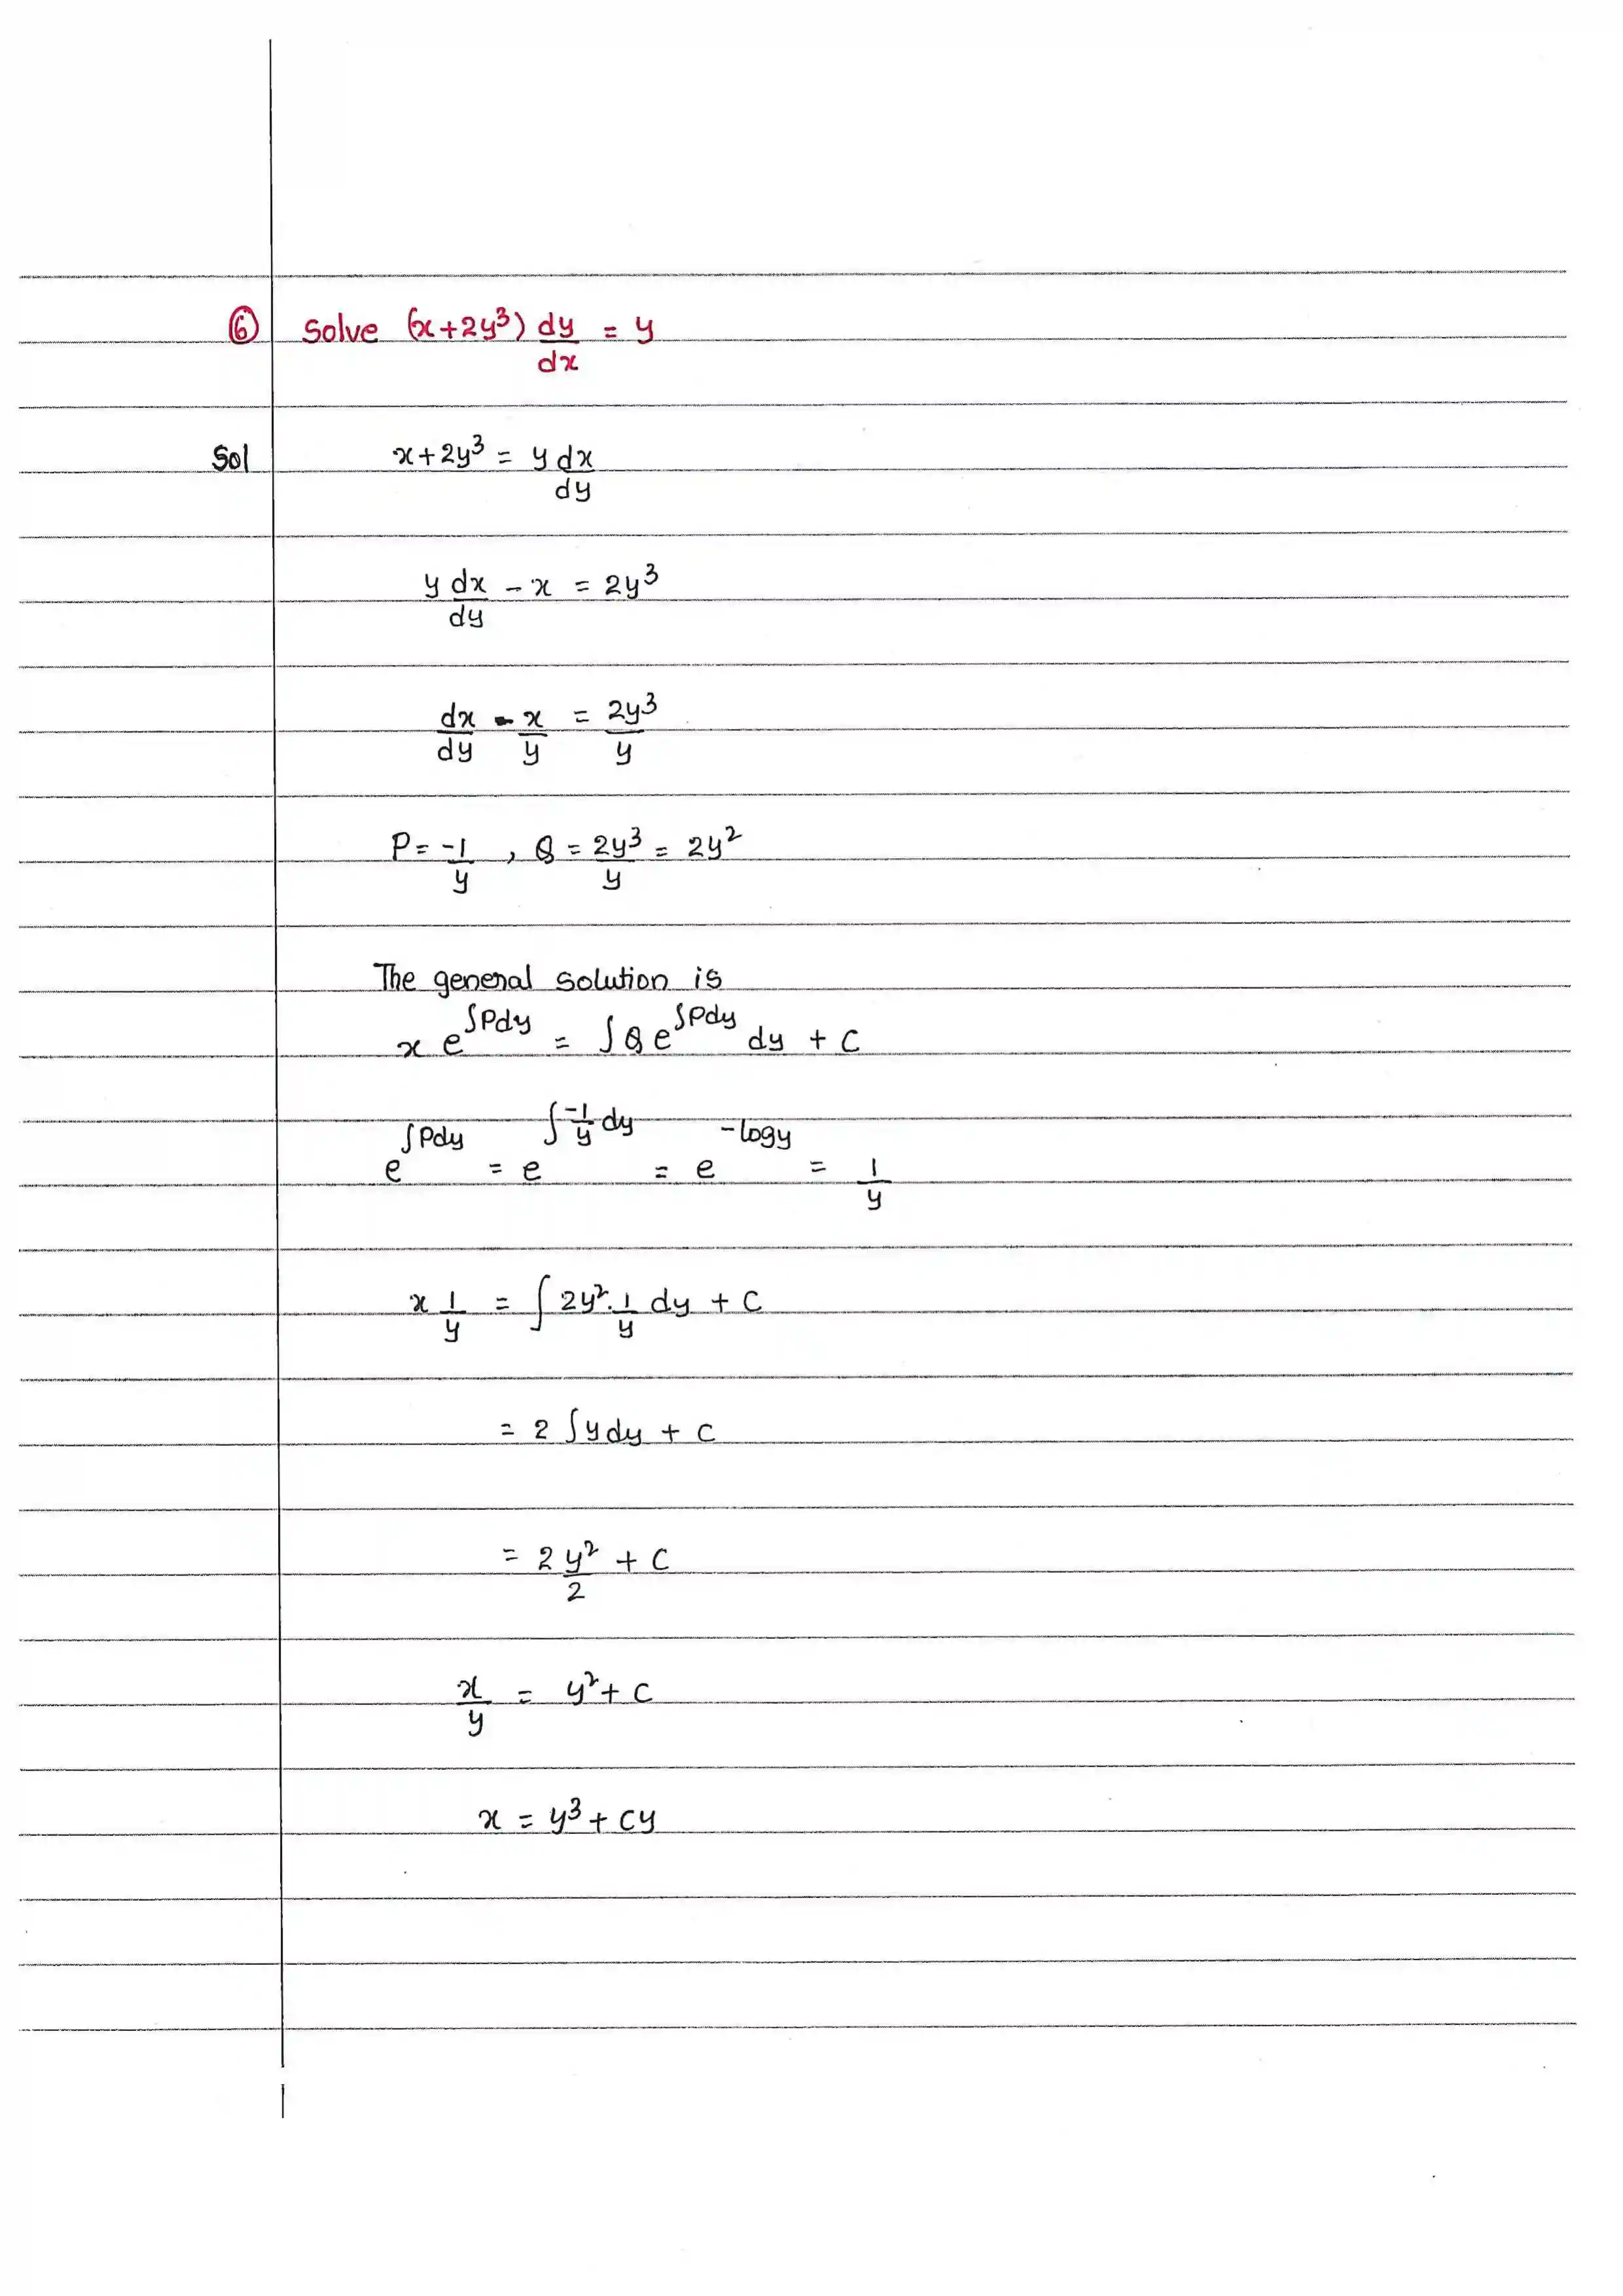 ⑥ Solve (x+2y³) dy/dx = y
Sol x+2y³ = y dx/dy
y dx/dy - x = 2y³
dx/dy - x/y = 2y³/y
P = -1/y , Q = 2y³/y = 2y²
The general solution is
x e^∫Pdy = ∫Q e^∫Pdy dy + C
e^∫Pdy = e^∫-1/y dy = e^-logy = 1/y
x 1/y = ∫ 2y². 1/y dy + C
= 2 ∫y dy + C
= 2 y²/2 + C
x/y = y² + C
x = y³ + cy